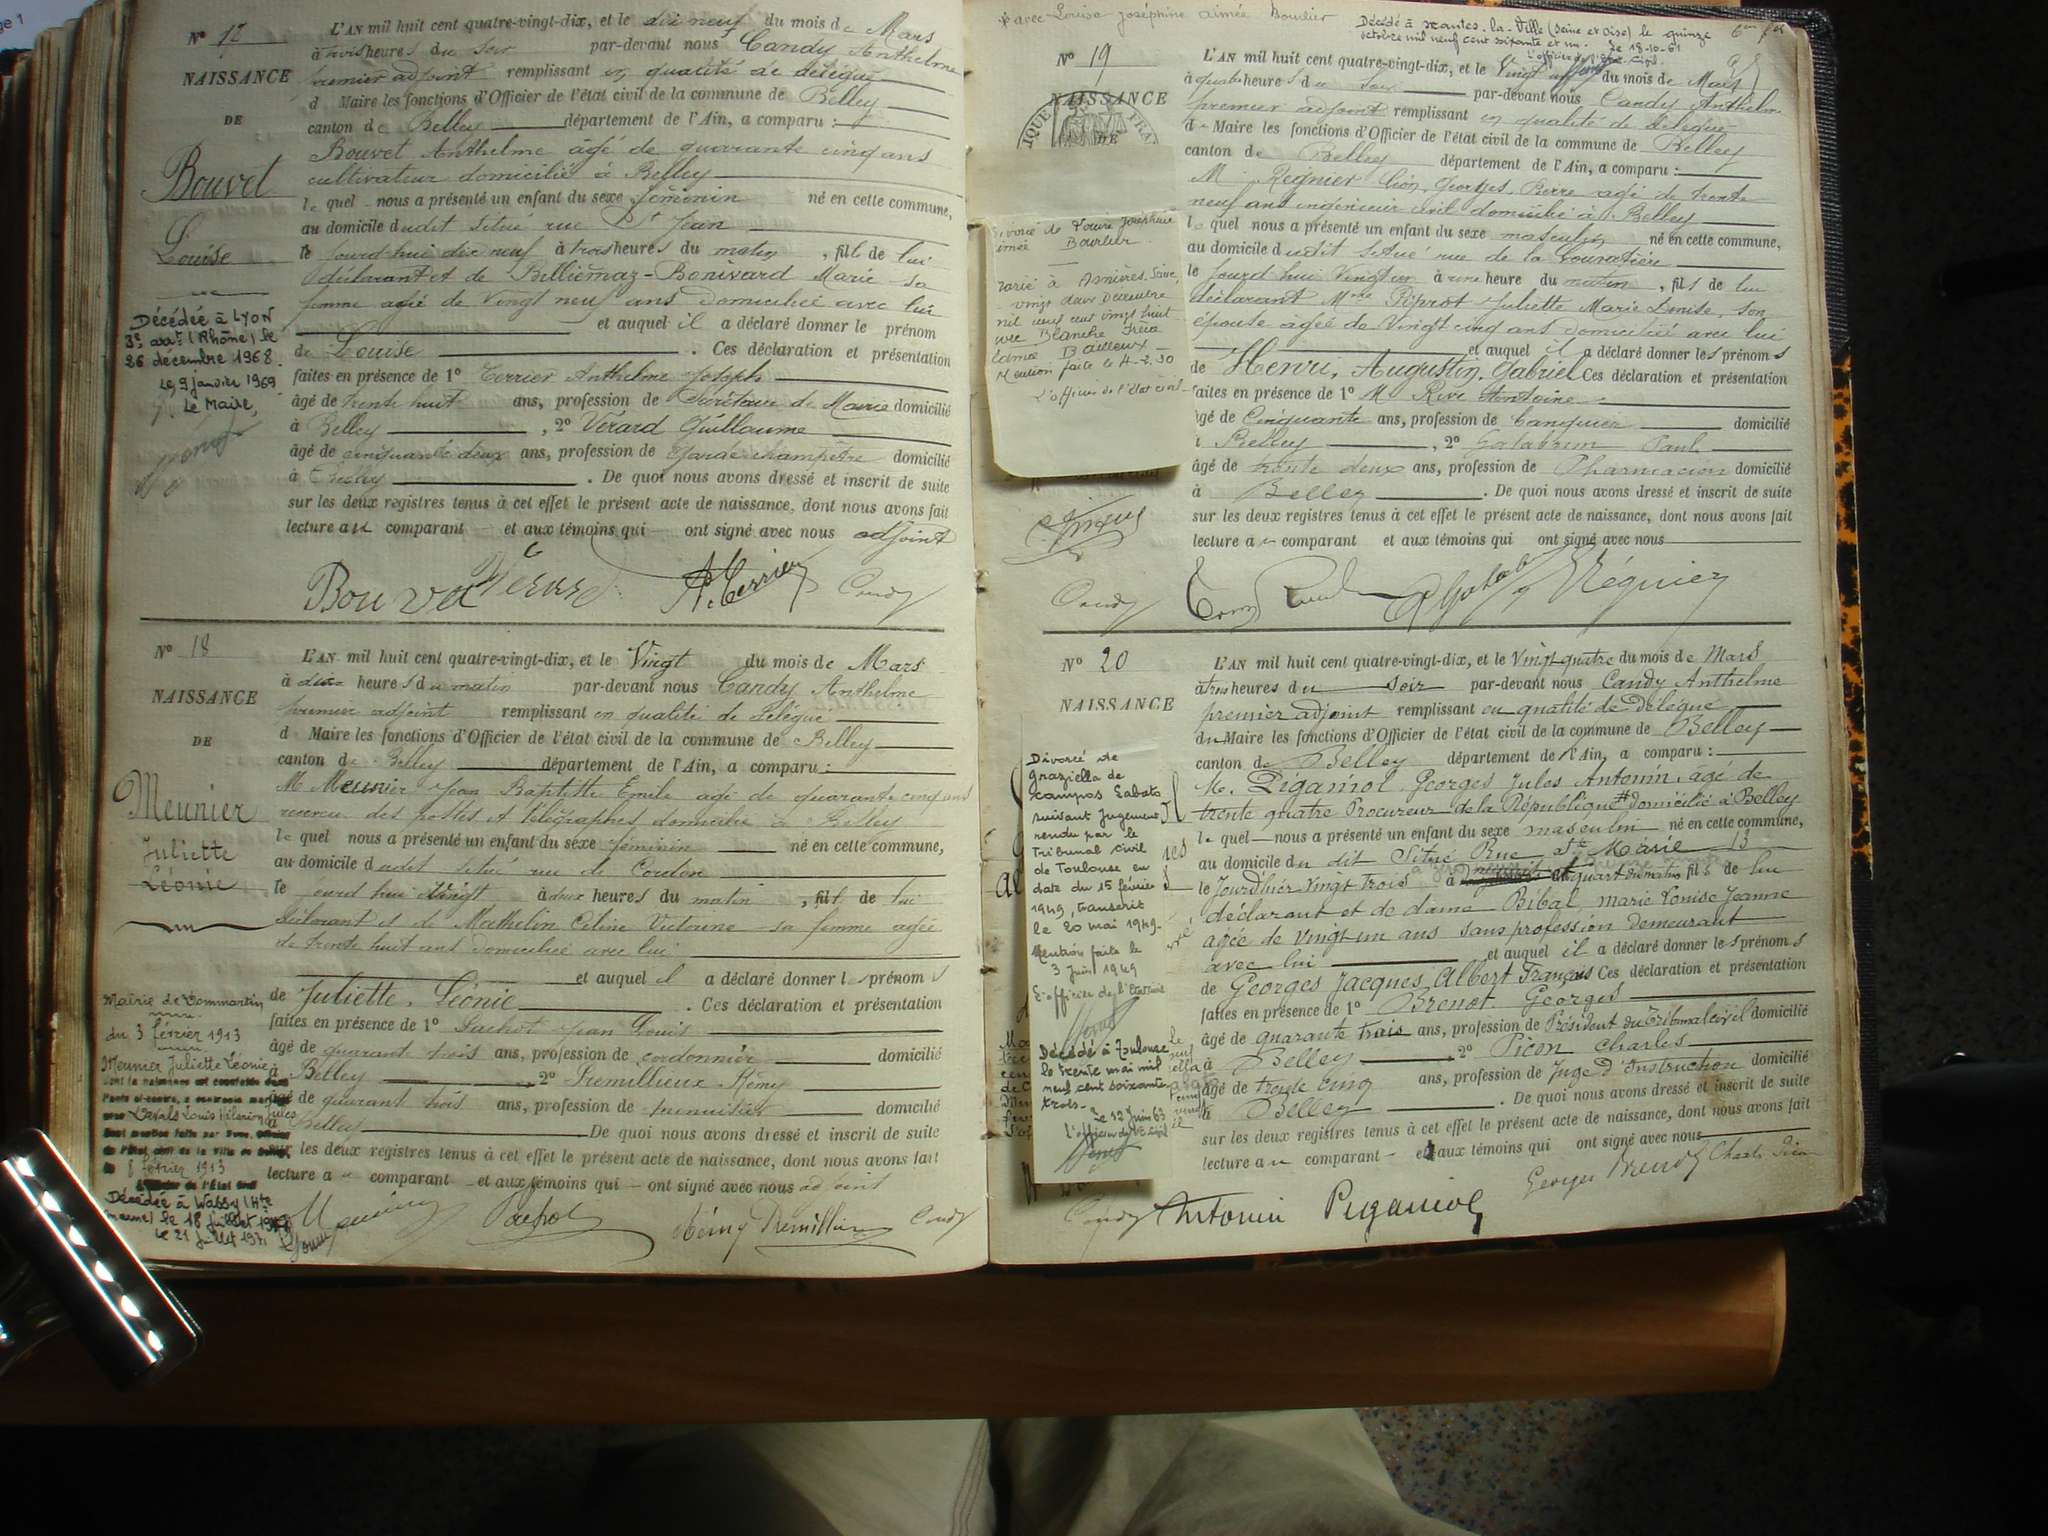 Nº 17
NAISSANCE
DE
Bouvet
Louise
Décédée à LYON
3e arrt (Rhône) le
26 décembre 1968.
Le 9 janvier 1969
Le Maire,
L'AN mil huit cent quatre-vingt-dix, et le dix neuf du mois de Mars
à trois heures du soir par-devant nous Candy Anthelme
premier adjoint remplissant en qualité de délégué
d Maire les fonctions d'Officier de l'état civil de la commune de Belley
canton de Belley département de l'Ain, a comparu :
Bouvet Anthelme âgé de quarante cinq ans
cultivateur domicilié à Belley
lequel nous a présenté un enfant du sexe féminin né en cette commune,
au domicile dudit situé rue St Jean
le jourd'hui dix neuf à trois heures du matin, fill de lui
déclarant et de Bellièmaz-Bonivard Marie sa
femme agée de Vingt neuf ans domiciliée avec lui
et auquel il a déclaré donner le prénom
de Louise. Ces déclaration et présentation
faites en présence de 1º Terrier Anthelme Joseph
âgé de trente huit ans, profession de Secrétaire de Mairie domicilié
à Belley, 2º Vérard Guillaume
âgé de cinquante deux ans, profession de Garde champêtre domicilié
à Belley. De quoi nous avons dressé et inscrit de suite
sur les deux registres tenus à cet effet le présent acte de naissance, dont nous avons fait
lecture au comparant et aux témoins qui ont signé avec nous adjoint
Bouvet Vérard A. Terrier Candy
Nº 18
NAISSANCE
DE
Meunier
Juliette
Léonie
L'AN mil huit cent quatre-vingt-dix, et le Vingt du mois de Mars
à dix heures du matin par-devant nous Candy Anthelme
premier adjoint remplissant en qualité de délégué
d Maire les fonctions d'Officier de l'état civil de la commune de Belley
canton de Belley département de l'Ain, a comparu :
M Meunier Jean Baptiste Emile agé de quarante cinq ans
receveur des postes et télégraphes domicilié à Belley
lequel nous a présenté un enfant du sexe féminin né en cette commune,
au domicile dudit situé rue de Cordon
le jourd'hui Vingt à deux heures du matin, fill de lui
déclarant et de Mathelin Céline Victorine sa femme agée
de trente huit ans domiciliée avec lui
et auquel il a déclaré donner les prénoms
de Juliette, Léonie. Ces déclaration et présentation
faites en présence de 1º Pachot Jean Louis
âgé de quarante trois ans, profession de cordonnier domicilié
à Belley 2º Premillieux Rémy
âgé de quarante trois ans, profession de menuisier domicilié
à Belley De quoi nous avons dressé et inscrit de suite
les deux registres tenus à cet effet le présent acte de naissance, dont nous avons fait
lecture au comparant et aux témoins qui ont signé avec nous adjoint
Meunier Pachot Rémy Premillieux Candy
Mairie de Dommartin
du 3 février 1913
Meunier Juliette Léonie
Louis Hilarion Jules
8 février 1913
Décédée à Wassy (Hte
Marne) le 18 juillet
le 21 juillet
* avec Louise Joséphine Aimée Bourlier
Décédé à Mantes-la-Ville (Seine et Oise) le quinze
octobre mil neuf cent soixante et un. Le 18-10-61
L'officier de l'état-civil.
Nº 19
NAISSANCE
DE
Divorcé de Louise Joséphine
Aimée Bourlier.
Marié à Asnières, Seine,
vingt deux Décembre
mil neuf cent vingt huit
avec Blanche
Edmée Bailleux
Mention faite le 4-2-30
L'officier de l'état civil
L'AN mil huit cent quatre-vingt-dix, et le Vingt un du mois de Mars
à quatre heures du soir par-devant nous Candy Anthelme
premier adjoint remplissant en qualité de délégué
d Maire les fonctions d'Officier de l'état civil de la commune de Belley
canton de Belley département de l'Ain, a comparu :
M. Regnier Léon, Georges, Pierre agé de trente
neuf ans ingénieur civil domicilié à Belley
lequel nous a présenté un enfant du sexe masculin né en cette commune,
au domicile dudit situé rue de la
le jourd'hui Vingt un à une heure du matin, fils de lui
déclarant Mme Juliette Marie Denise, son
épouse âgée de Vingt cinq ans domiciliée avec lui
et auquel il a déclaré donner les prénoms
de Henri, Augustin, Gabriel Ces déclaration et présentation
faites en présence de 1º M Rive Antoine
âgé de Cinquante ans, profession de banquier domicilié
à Belley, 2º Galabrun Paul
âgé de trente deux ans, profession de Pharmacien domicilié
à Belley. De quoi nous avons dressé et inscrit de suite
sur les deux registres tenus à cet effet le présent acte de naissance, dont nous avons fait
lecture au comparant et aux témoins qui ont signé avec nous
Candy Régnier
Nº 20
NAISSANCE
Divorcé de
Graziella de
Campos Sabato
suivant jugement
rendu par le
Tribunal Civil
de Toulouse en
date du 15 février
1949, transcrit
le 20 mai 1949.
Mention faite le
3 Juin 1949
L'officier de l'état civil
Décédé à Toulouse
le trente mai mil
neuf cent soixante
trois.
Le 12 Juin 63
L'officier de l'E. Civil
L'AN mil huit cent quatre-vingt-dix, et le Vingt quatre du mois de Mars
à trois heures du soir par-devant nous Candy Anthelme
premier adjoint remplissant en qualité de Délégué
du Maire les fonctions d'Officier de l'état civil de la commune de Belley
canton de Belley département de l'Ain, a comparu :
M. Piganiol, Georges Jules Antonin, âgé de
trente quatre Procureur de la République domicilié à Belley
lequel nous a présenté un enfant du sexe masculin né en cette commune,
au domicile du dit Situé Rue Ste Marie 13
le Jourd'hier Vingt trois à un quart du matin fils de lui
déclarant et de dame Bibal, Marie Louise Jeanne
agée de Vingt un ans sans profession demeurant
avec lui et auquel il a déclaré donner les prénoms
de Georges Jacques Albert François Ces déclaration et présentation
faites en présence de 1º Brenot Georges
âgé de quarante trois ans, profession de Président du Tribunal civil domicilié
à Belley, 2º Picon Charles
âgé de trente cinq ans, profession de Juge d'Instruction domicilié
à Belley. De quoi nous avons dressé et inscrit de suite
sur les deux registres tenus à cet effet le présent acte de naissance, dont nous avons fait
lecture au comparant et aux témoins qui ont signé avec nous
Candy Antonin Piganiol Georges Brenot Charles Picon